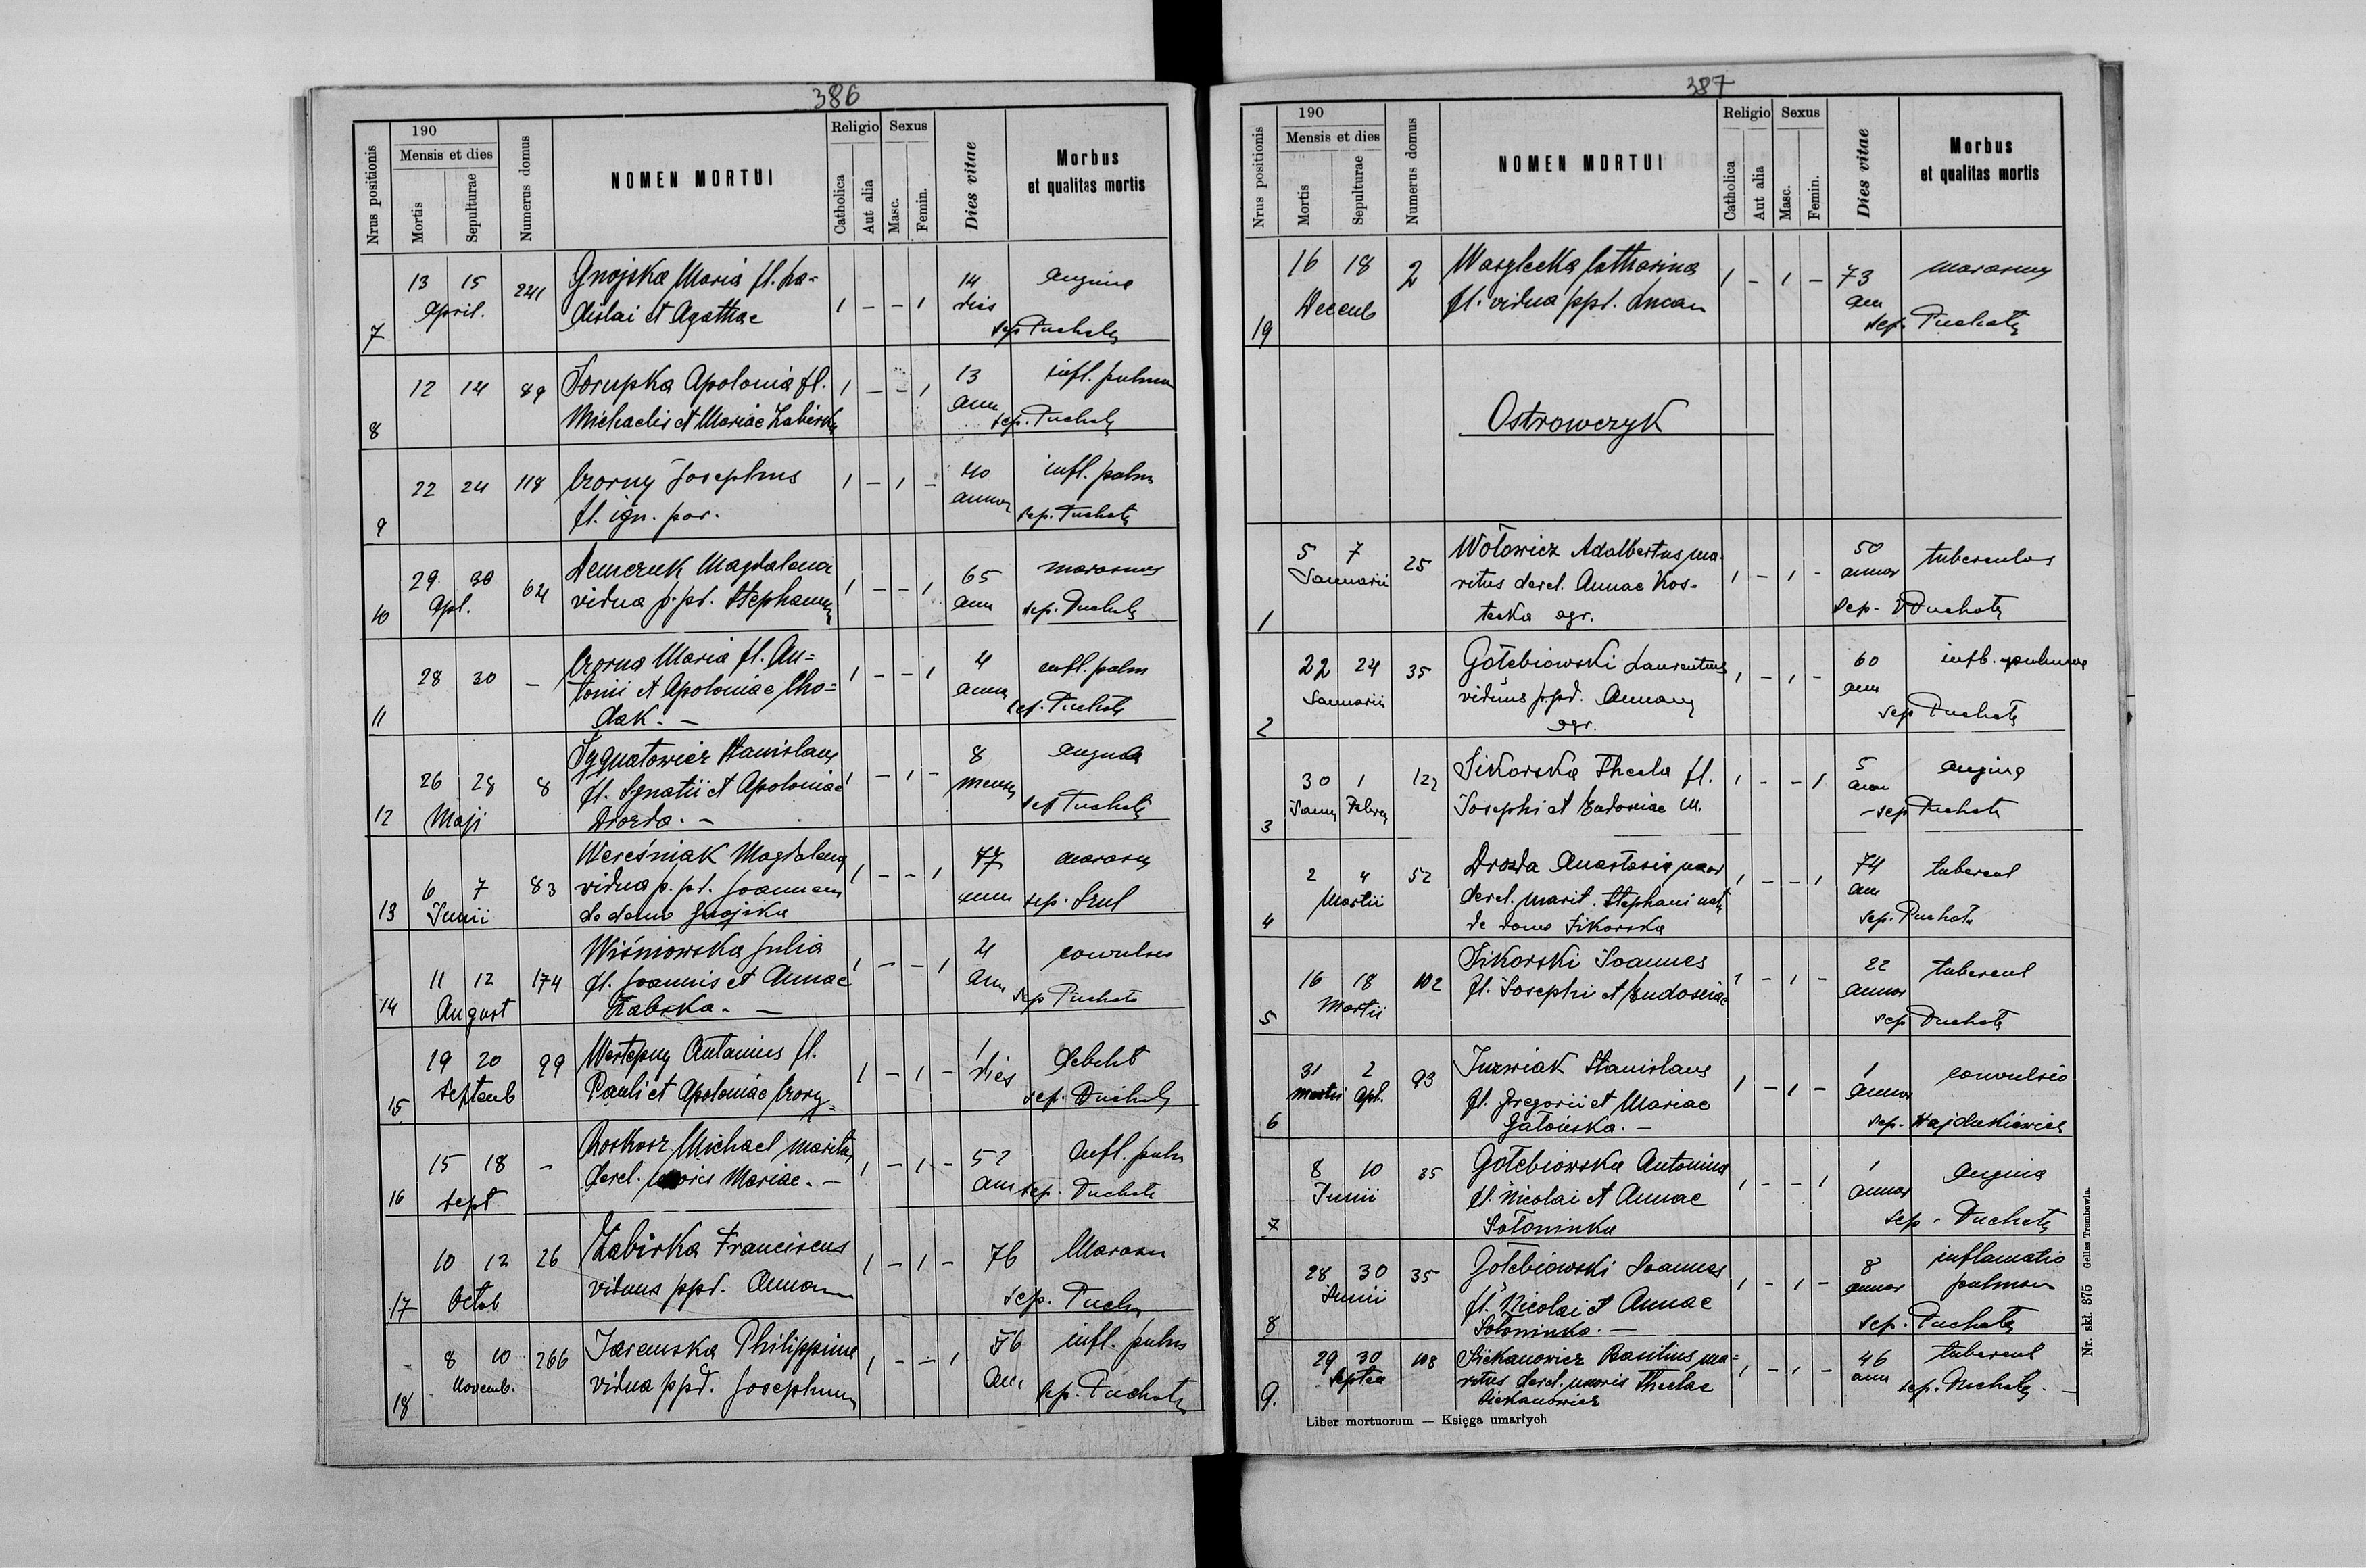 386
Nrus positionis
190
Mensis et dies
Mortis
Sepulturae
Numerus domus
NOMEN MORTUI
Religio
Catholica
Aut alia
Sexus
Masc.
Femin.
Dies vitae
Morbus
et qualitas mortis
7 13 15 April. 241
Gnojska Maria fl. La=
dislai et Agathae
1 - - 1 14 dies
angina
sep.
8 12 14 89
Apolonia fl.
Michaelis et Mariae
1 - - 1 13 ann
infl. pulmon
sep.
9 22 24 118
Czorny Josephus
fl. ign. par.
1 - 1 - 40 annor
infl. pulm
sep.
10 29 30 Apl. 64
Demczuk Magdalena
vidua p. pd. Stephanum
1 - - 1 65 ann
marasmus
sep.
11 28 30 -
Czorna Maria fl. An=
tonii et Apoloniae Cho=
dak. -
1 - - 1 4 annor
infl. pulm
sep.
12 26 28 Maji 8
Stanislaus
fl. Ignatii et Apoloniae
Drozda. -
1 - 1 - 8 mens
angina
sep
13 6 7 Junii 83
Wereśniak Magdalena
vidua p. pd. Joannem
de domo Gnojska
1 - - 1 77 ann
marasm
sep.
14 11 12 August 174
Wiśniowska Julia
fl. Joannis et Annae
1 - - 1 4 ann
convulsio
sep
15 19 20 Septemb 99
Antonius fl.
Pauli et Apoloniae
1 - 1 - 1 dies
debilit
sep.
16 15 18 Sept -
Roskosz Michael maritus
derel. uxoris Mariae. -
1 - 1 - 52 ann
infl. pulm
sep.
17 10 12 Octob 26
Franciscus
viduus ppd. Annam
1 - 1 - 76
Marasm
sep.
18 8 10 Novemb. 266
Philippina
vidua ppd. Josephum
1 - - 1 76 ann
infl. pulm
sep.
387
Nrus positionis
190
Mensis et dies
Mortis
Sepulturae
Numerus domus
NOMEN MORTUI
Religio
Catholica
Aut alia
Sexus
Masc.
Femin.
Dies vitae
Morbus
et qualitas mortis
19 16 18 Decemb 2
Catharina
fl. vidua ppd. Lucam
1 - 1 - 73 ann
marasmus
sep.
Ostrowczyk
1 5 7 Januarii 25
Wołowicz Adalbertus ma-
ritus derel. Annae Kos-
tecka agr.
1 - 1 - 50 annor
tuberculos
sep.
2 22 24 Januarii 35
Gołebiowski Laurentius
viduus p. pd. Annam
agr.
1 - 1 - 60 ann
infl. pulmon
sep
3 30 1 Janu Febru 122
Sikorska Thecla fl.
Josephi et Eudoxiae M.
1 - - 1 5 ann
angina
sep
4 2 4 Martii 52
Drozda Anastasia uxor
derel. marit. Stephani nat
de domo Sikorska
1 - - 1 74 ann
tubercul
sep.
5 16 18 Martii 102
Sikorski Joannes
fl. Josephi et Eudoxiae
1 - 1 - 22 annor
tubercul
sep
6 31 2 Martii Apl. 93
Stanislaus
fl. Gregorii et Mariae
1 - 1 - 1 annor
convulsio
sep. Hajdukiewicz
7 8 10 Junii 35
Gołebiowska Antonina
fl. Nicolai et Annae
Sołoninka
1 - - 1 1 annor
angina
sep.
8 28 30 Junii 35
Gołebiowski Joannes
fl. Nicolai et Annae
Sołoninka. -
1 - 1 - 8 annor
inflamatio
pulmon
sep.
9. 29 30 Septem 108
Siekanowicz Basilius ma=
ritus derel. uxoris Theclae
Siekanowicz
1 - 1 - 46 ann
tubercul
sep.
Liber mortuorum — Księga umarłych
Nr. skł. 375 Gelles Trembowla.